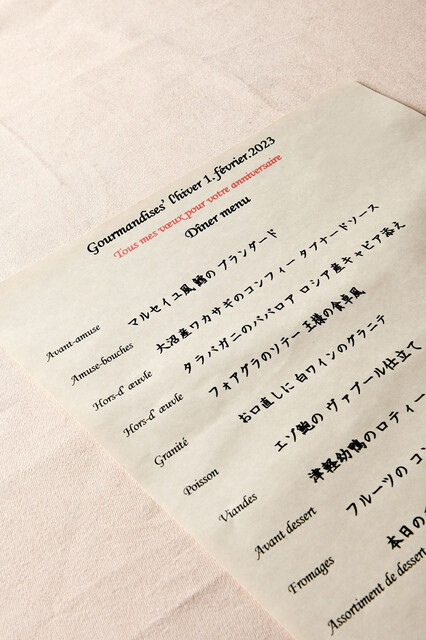 Gourmandises' l'hiver 1.février.2023
Tous mes vœux pour votre anniversaire
Dîner menu
Avant-amuse マルセイユ風鱈の ブランダード
Amuse-bouches 大沼産ワカサギのコンフィー タプナードソース
Hors-d' œuvle タラバガニのババロア ロシア産キャビア添え
Hors-d' œuvle フォアグラのソテー 王様の食卓風
Granité お口直しに 白ワインのグラニテ
Poisson エゾ鮑の ヴァプール仕立て
Viandes 津軽幼鴨のロティー
Avant dessert フルーツの コン
Fromages 本日の
Assortiment de dessert